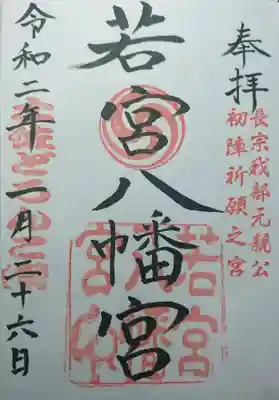 奉拝
長宗我部元親公
初陣祈願之宮
若宮八幡宮
若宮
八幡宮
令和二年二月二十六日